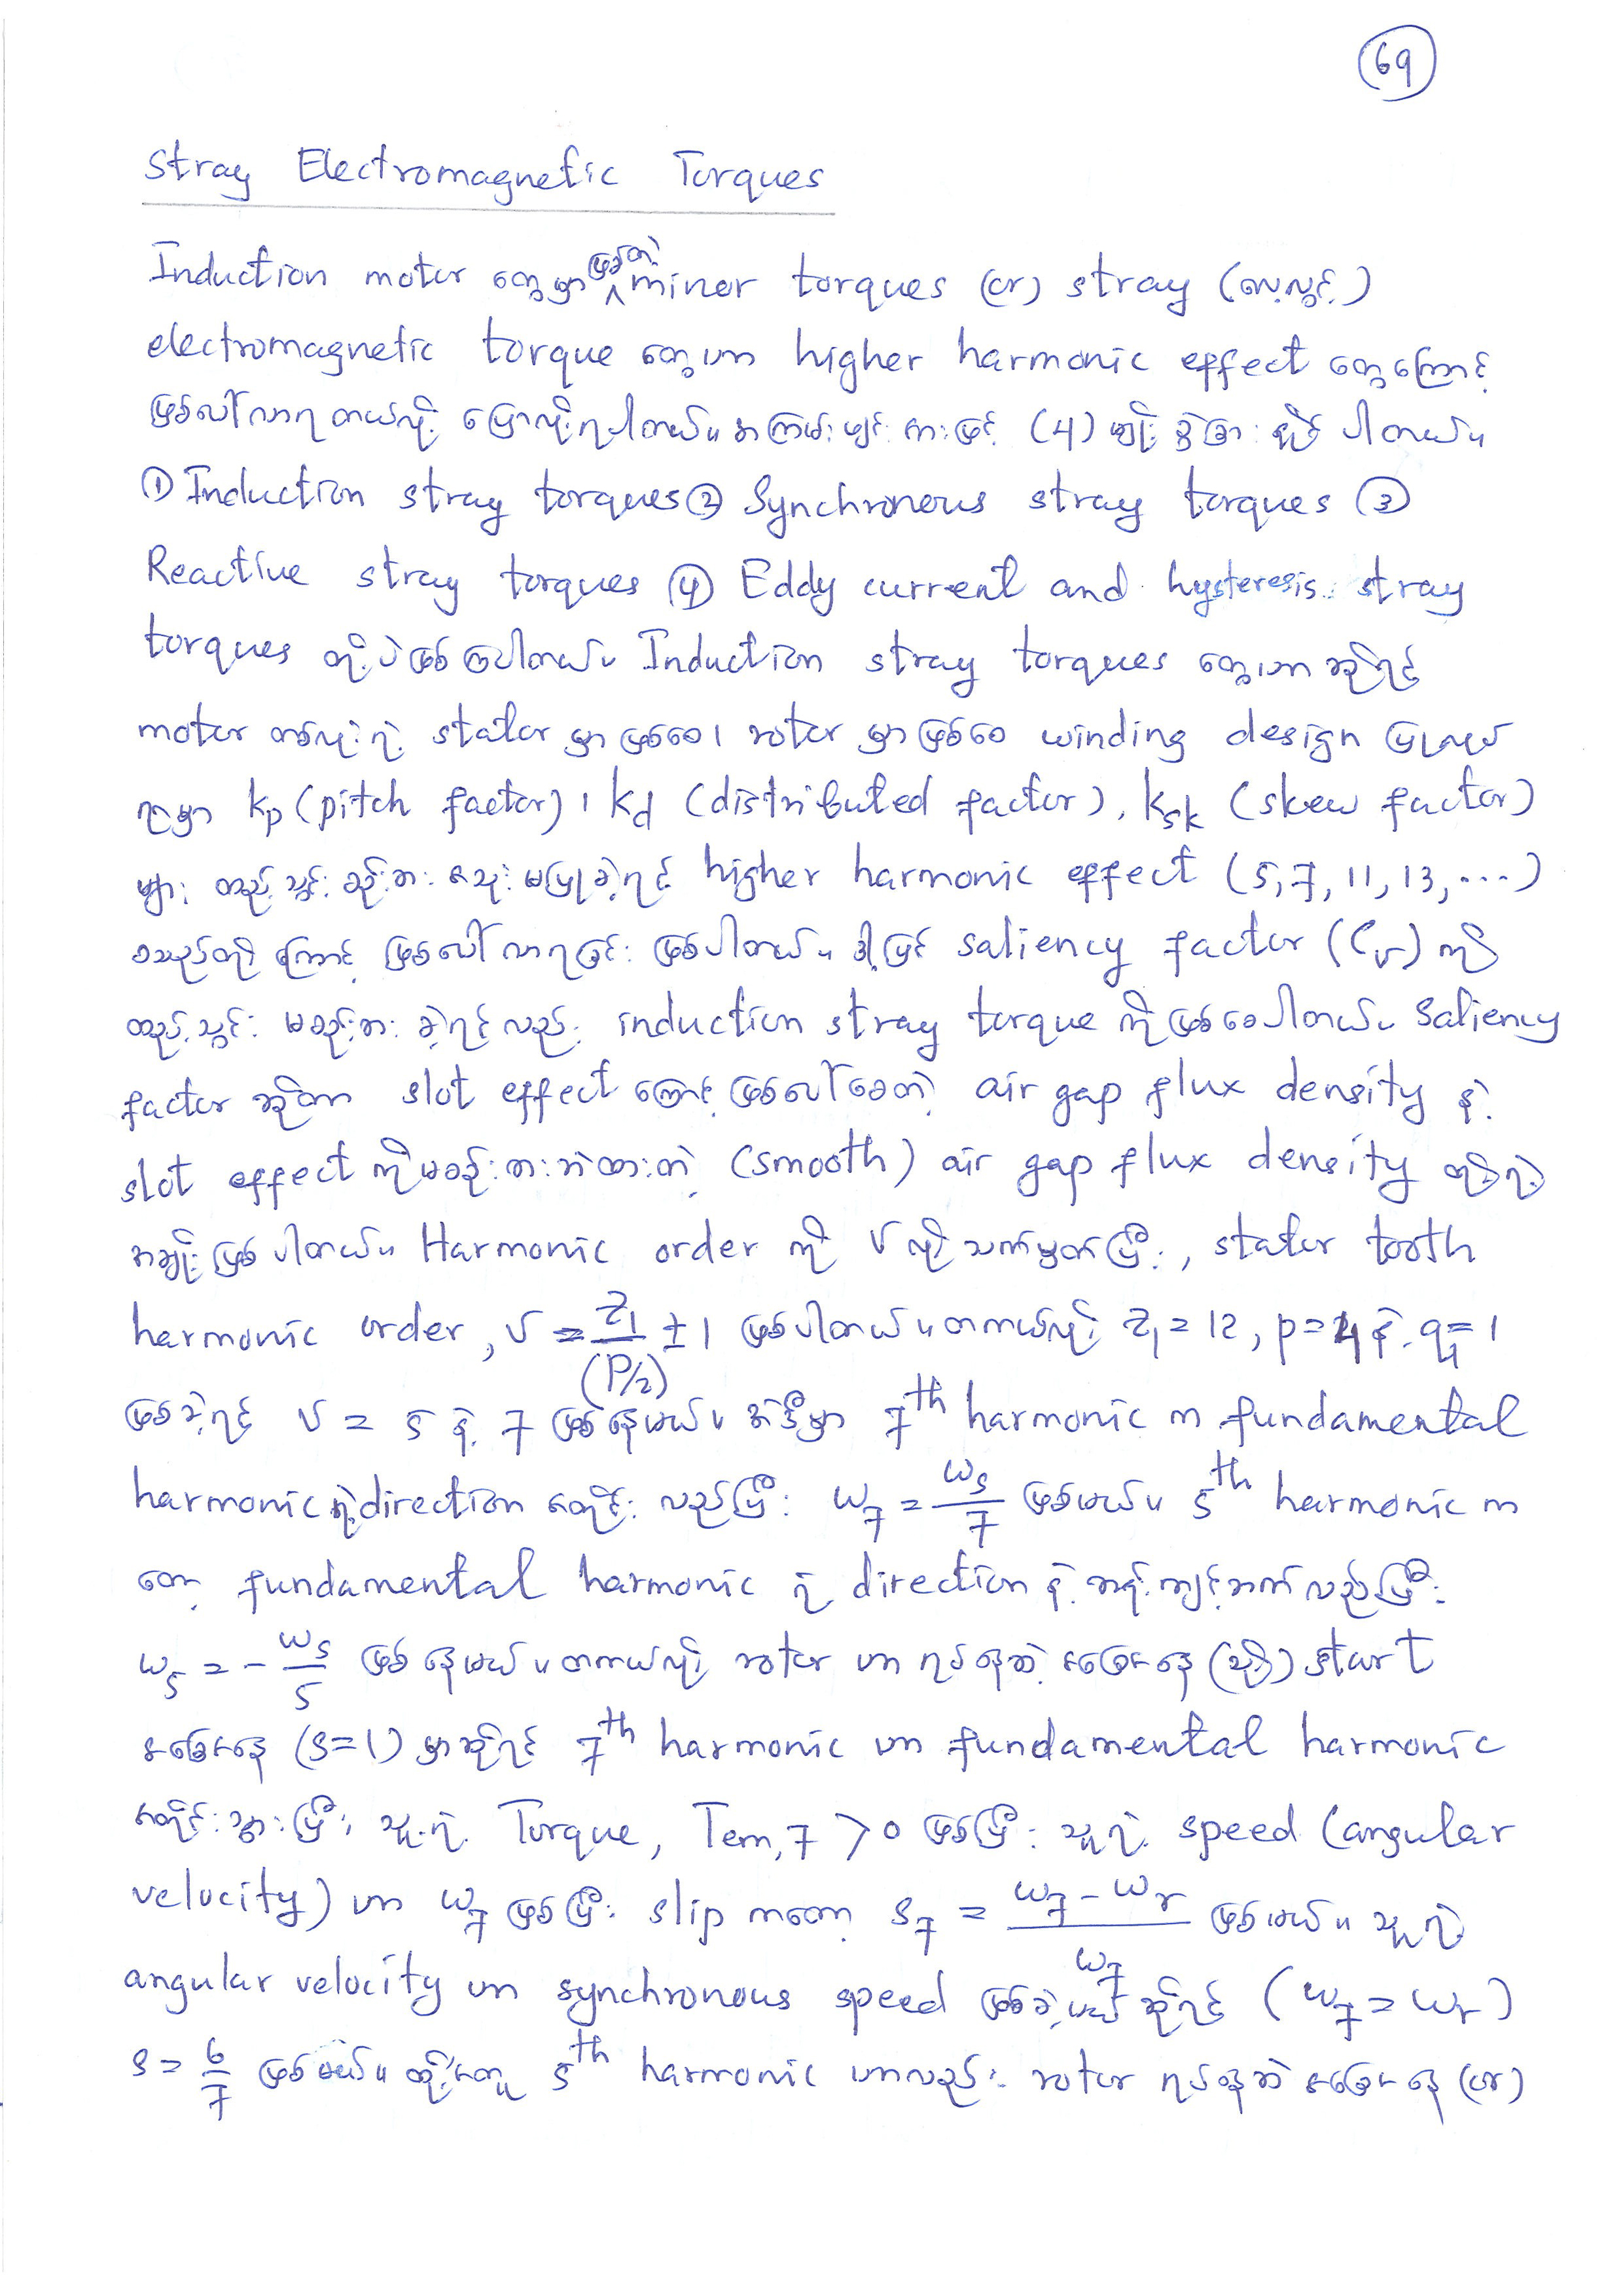 69
Stray Electromagnetic Torques
Induction motor တွေမှာ ဖြစ်တဲ့ minor torques (or) stray (လေ့လွင့်)
electromagnetic torque တွေဟာ higher harmonic effect တွေကြောင့်
ဖြစ်ပေါ်လာရတယ်လို့ ပြောလို့ရပါတယ်။ အကြမ်းဖျင်းအားဖြင့် (4) မျိုး ခွဲခြားနိုင်ပါတယ်။
① Induction stray torques ② Synchronous stray torques ③
Reactive stray torques ④ Eddy current and hysteresis stray
torques တို့ပဲဖြစ်ကြပါတယ်။ Induction stray torques တွေဟာဆိုရင်
motor တစ်လုံးရဲ့ stator မှာဖြစ်စေ၊ rotor မှာဖြစ်စေ winding design ပြုလုပ်
ရာမှာ kp (pitch factor)၊ kd (distributed factor), ksk (skew factor)
များ ထည့်သွင်းစဉ်းစား မပြုခဲ့ရင် higher harmonic effect (5, 7, 11, 13, ...)
စသည်တို့ကြောင့် ဖြစ်ပေါ်လာရခြင်း ဖြစ်ပါတယ်။ ဒါ့ပြင် saliency factor (Cv) ကို
ထည့်သွင်း မစဉ်းစားခဲ့ရင်လည်း induction stray torque ကိုဖြစ်စေပါတယ်။ Saliency
factor ဆိုတာ slot effect ကြောင့် ဖြစ်ပေါ်စေတဲ့ air gap flux density နဲ့
slot effect ကိုမစဉ်းစားဘဲထားတဲ့ (smooth) air gap flux density တို့ရဲ့
အချိုးဖြစ်ပါတယ်။ Harmonic order ကို v လို့သတ်မှတ်ပြီး, stator tooth
harmonic order, v = Z1/(P/2) ± 1 ဖြစ်ပါတယ်။ တကယ်လို့ Z1 = 12, p = 4 နဲ့ q1 = 1
ဖြစ်ခဲ့ရင် v = 5 နဲ့ 7 ဖြစ်နေမယ်။ အဲဒီမှာ 7th harmonic က fundamental
harmonic ရဲ့ direction အတိုင်း လည်ပြီး ω7 = ωs/7 ဖြစ်မယ်။ 5th harmonic က
တော့ fundamental harmonic ရဲ့ direction နဲ့ ဆန့်ကျင့်ဘက်လည်ပြီး
ω5 = - ωs/5 ဖြစ်နေမယ်။ တကယ်လို့ rotor ဟာ ရပ်နေတဲ့ အခြေအနေ (သို့) start
အခြေအနေ (s=1) မှာဆိုရင် 7th harmonic ဟာ fundamental harmonic
အတိုင်းသွားပြီး သူ့ရဲ့ Torque, Tem,7 > 0 ဖြစ်ပြီး သူ့ရဲ့ speed (angular
velocity) ဟာ ω7 ဖြစ်ပြီး slip ကတော့ s7 = (ω7 - ωr)/ω7 ဖြစ်မယ်။ သူ့ရဲ့
angular velocity ဟာ synchronous speed ဖြစ်ခဲ့မယ်ဆိုရင် (ω7 = ωr)
s = 6/7 ဖြစ်မယ်။ ထို့အတူ 5th harmonic ဟာလည်း rotor ရပ်နေတဲ့ အခြေအနေ (or)